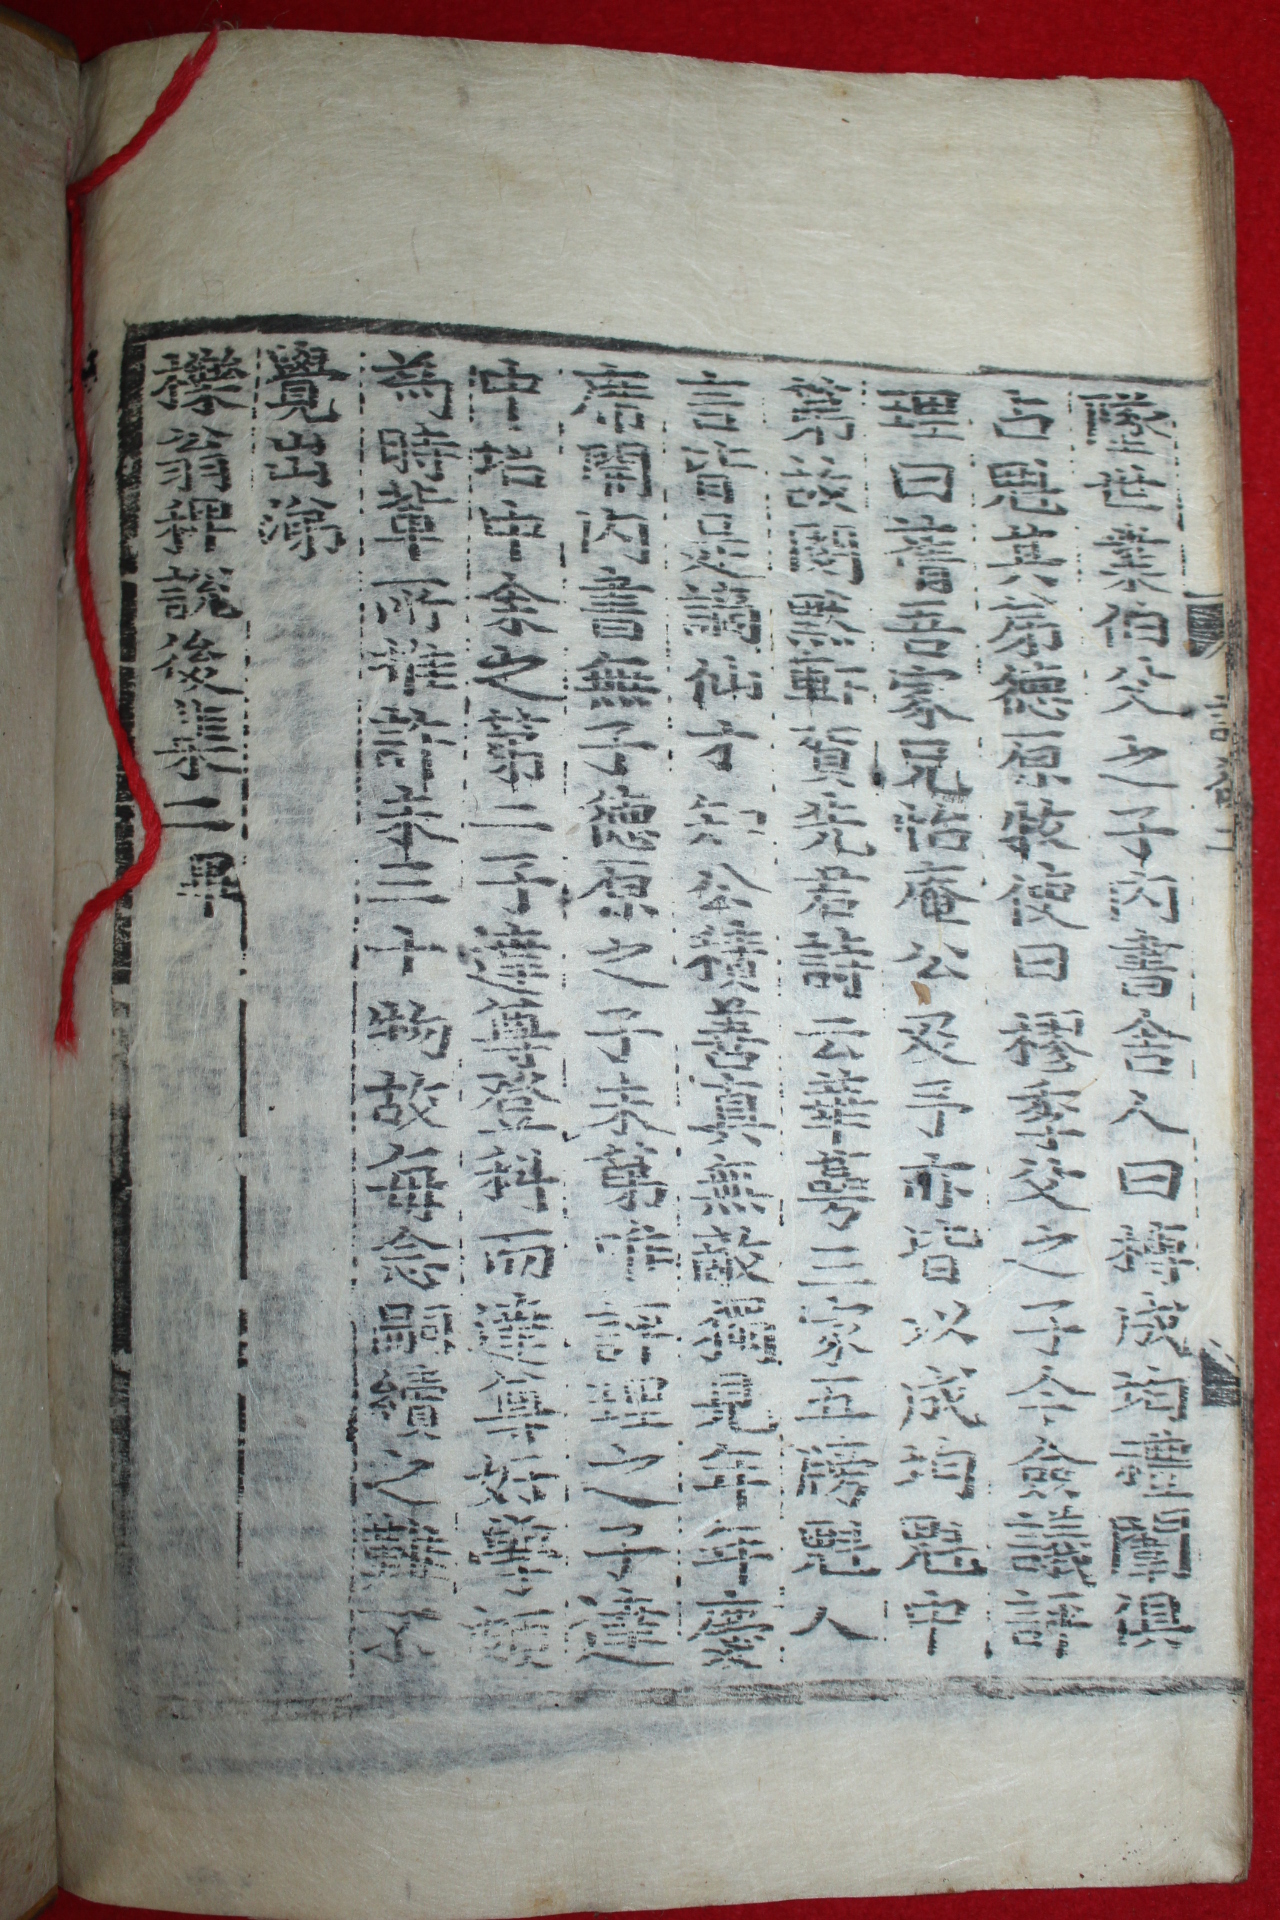 隆世業伯父之子內書舍人曰
占魁其弟德原牧使曰穆季父之子今僉議評
理曰蒨吾家兄怡庵公及予亦皆以成均魁中
第故閔默軒賀先君詩云華萼三家五牓魁人
言皆是謫仙才知公積善眞無敵 見年年慶
席開內書無子德原之子未第 評理之子達
中培中余之第二子達尊登科而達尊好學頗
爲時輩所推許年三十物故每念 續之難不
覺出涕
櫟翁稗說後集二畢